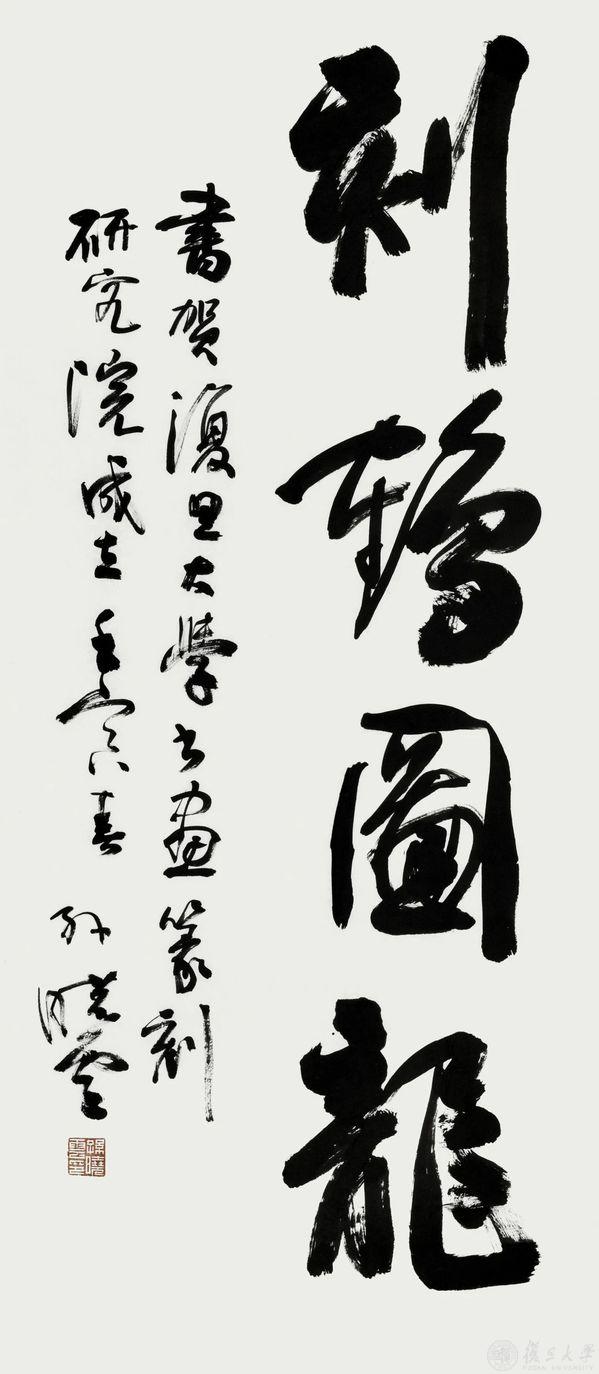 刻鶴圖龍
書賀復旦大學书畫篆刻
研究院成立 壬寅春
孙曉雲
孫曉雲印
復旦大學
FUDAN UNIVERSITY